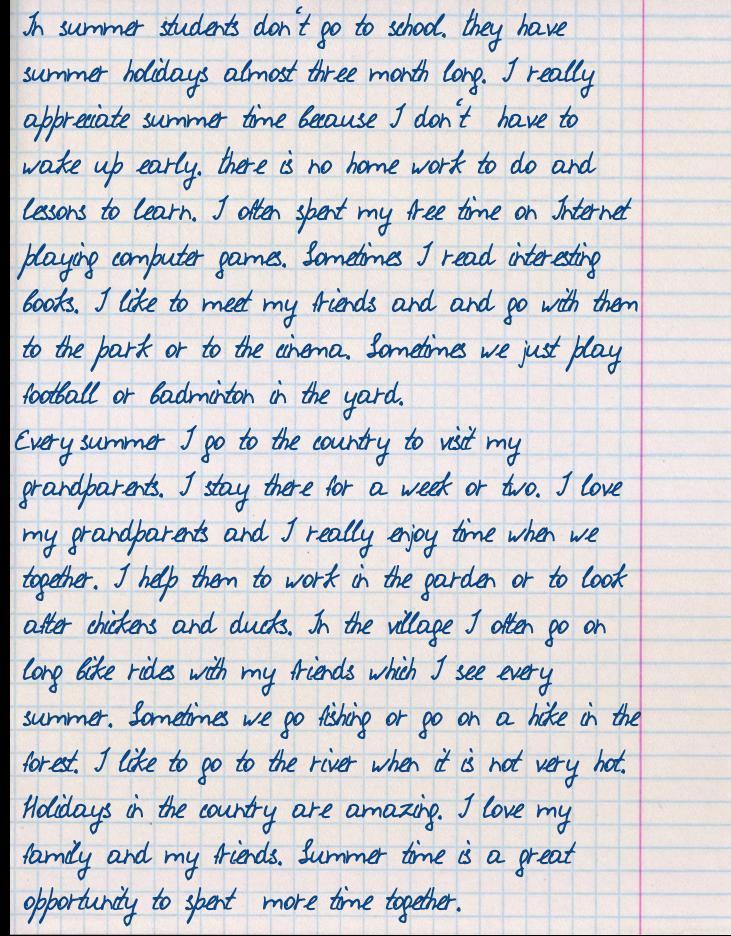 In summer students don't go to school. they have
summer holidays almost three month long. I really
appreciate summer time because I don't have to
wake up early. there is no home work to do and
lessons to learn. I often spent my free time on Internet
playing computer games. Sometimes I read interesting
books. I like to meet my friends and and go with them
to the park or to the cinema. Sometimes we just play
football or badminton in the yard.
Every summer I go to the country to visit my
grandparents. I stay there for a week or two. I love
my grandparents and I really enjoy time when we
together. I help them to work in the garden or to look
after chickens and ducks. In the village I often go on
long bike rides with my friends which I see every
summer. Sometimes we go fishing or go on a hike in the
forest. I like to go to the river when it is not very hot.
Holidays in the country are amazing. I love my
family and my friends. Summer time is a great
opportunity to spent more time together.